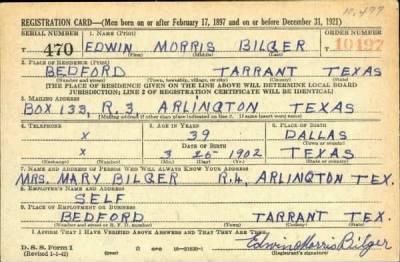 10,497
REGISTRATION CARD—(Men born on or after February 17, 1897 and on or before December 31, 1921)
SERIAL NUMBER 1. NAME (Print) ORDER NUMBER
T 470 EDWIN MORRIS BILGER T 10497
(First) (Middle) (Last)
2. PLACE OF RESIDENCE (Print)
BEDFORD TARRANT TEXAS
(Number and street) (Town, township, village, or city) (County) (State)
[THE PLACE OF RESIDENCE GIVEN ON THE LINE ABOVE WILL DETERMINE LOCAL BOARD
JURISDICTION; LINE 2 OF REGISTRATION CERTIFICATE WILL BE IDENTICAL]
3. MAILING ADDRESS
BOX 133, R. 3, ARLINGTON TEXAS
[Mailing address if other than place indicated on line 2. If same insert word same]
4. TELEPHONE 5. AGE IN YEARS 6. PLACE OF BIRTH
X 39 DALLAS
DATE OF BIRTH (Town or county)
X 3 25 1902 TEXAS
(Exchange) (Number) (Mo.) (Day) (Yr.) (State or country)
7. NAME AND ADDRESS OF PERSON WHO WILL ALWAYS KNOW YOUR ADDRESS
MRS. MARY BILGER ARLINGTON TEX.
8. EMPLOYER'S NAME AND ADDRESS
SELF
9. PLACE OF EMPLOYMENT OR BUSINESS
BEDFORD TARRANT TEX.
(Number and street or R. F. D. number) (Town) (County) (State)
I AFFIRM THAT I HAVE VERIFIED ABOVE ANSWERS AND THAT THEY ARE TRUE.
D. S. S. Form 1
(Revised 1-1-42) Edwin Morris Bilger
(Registrant's signature)